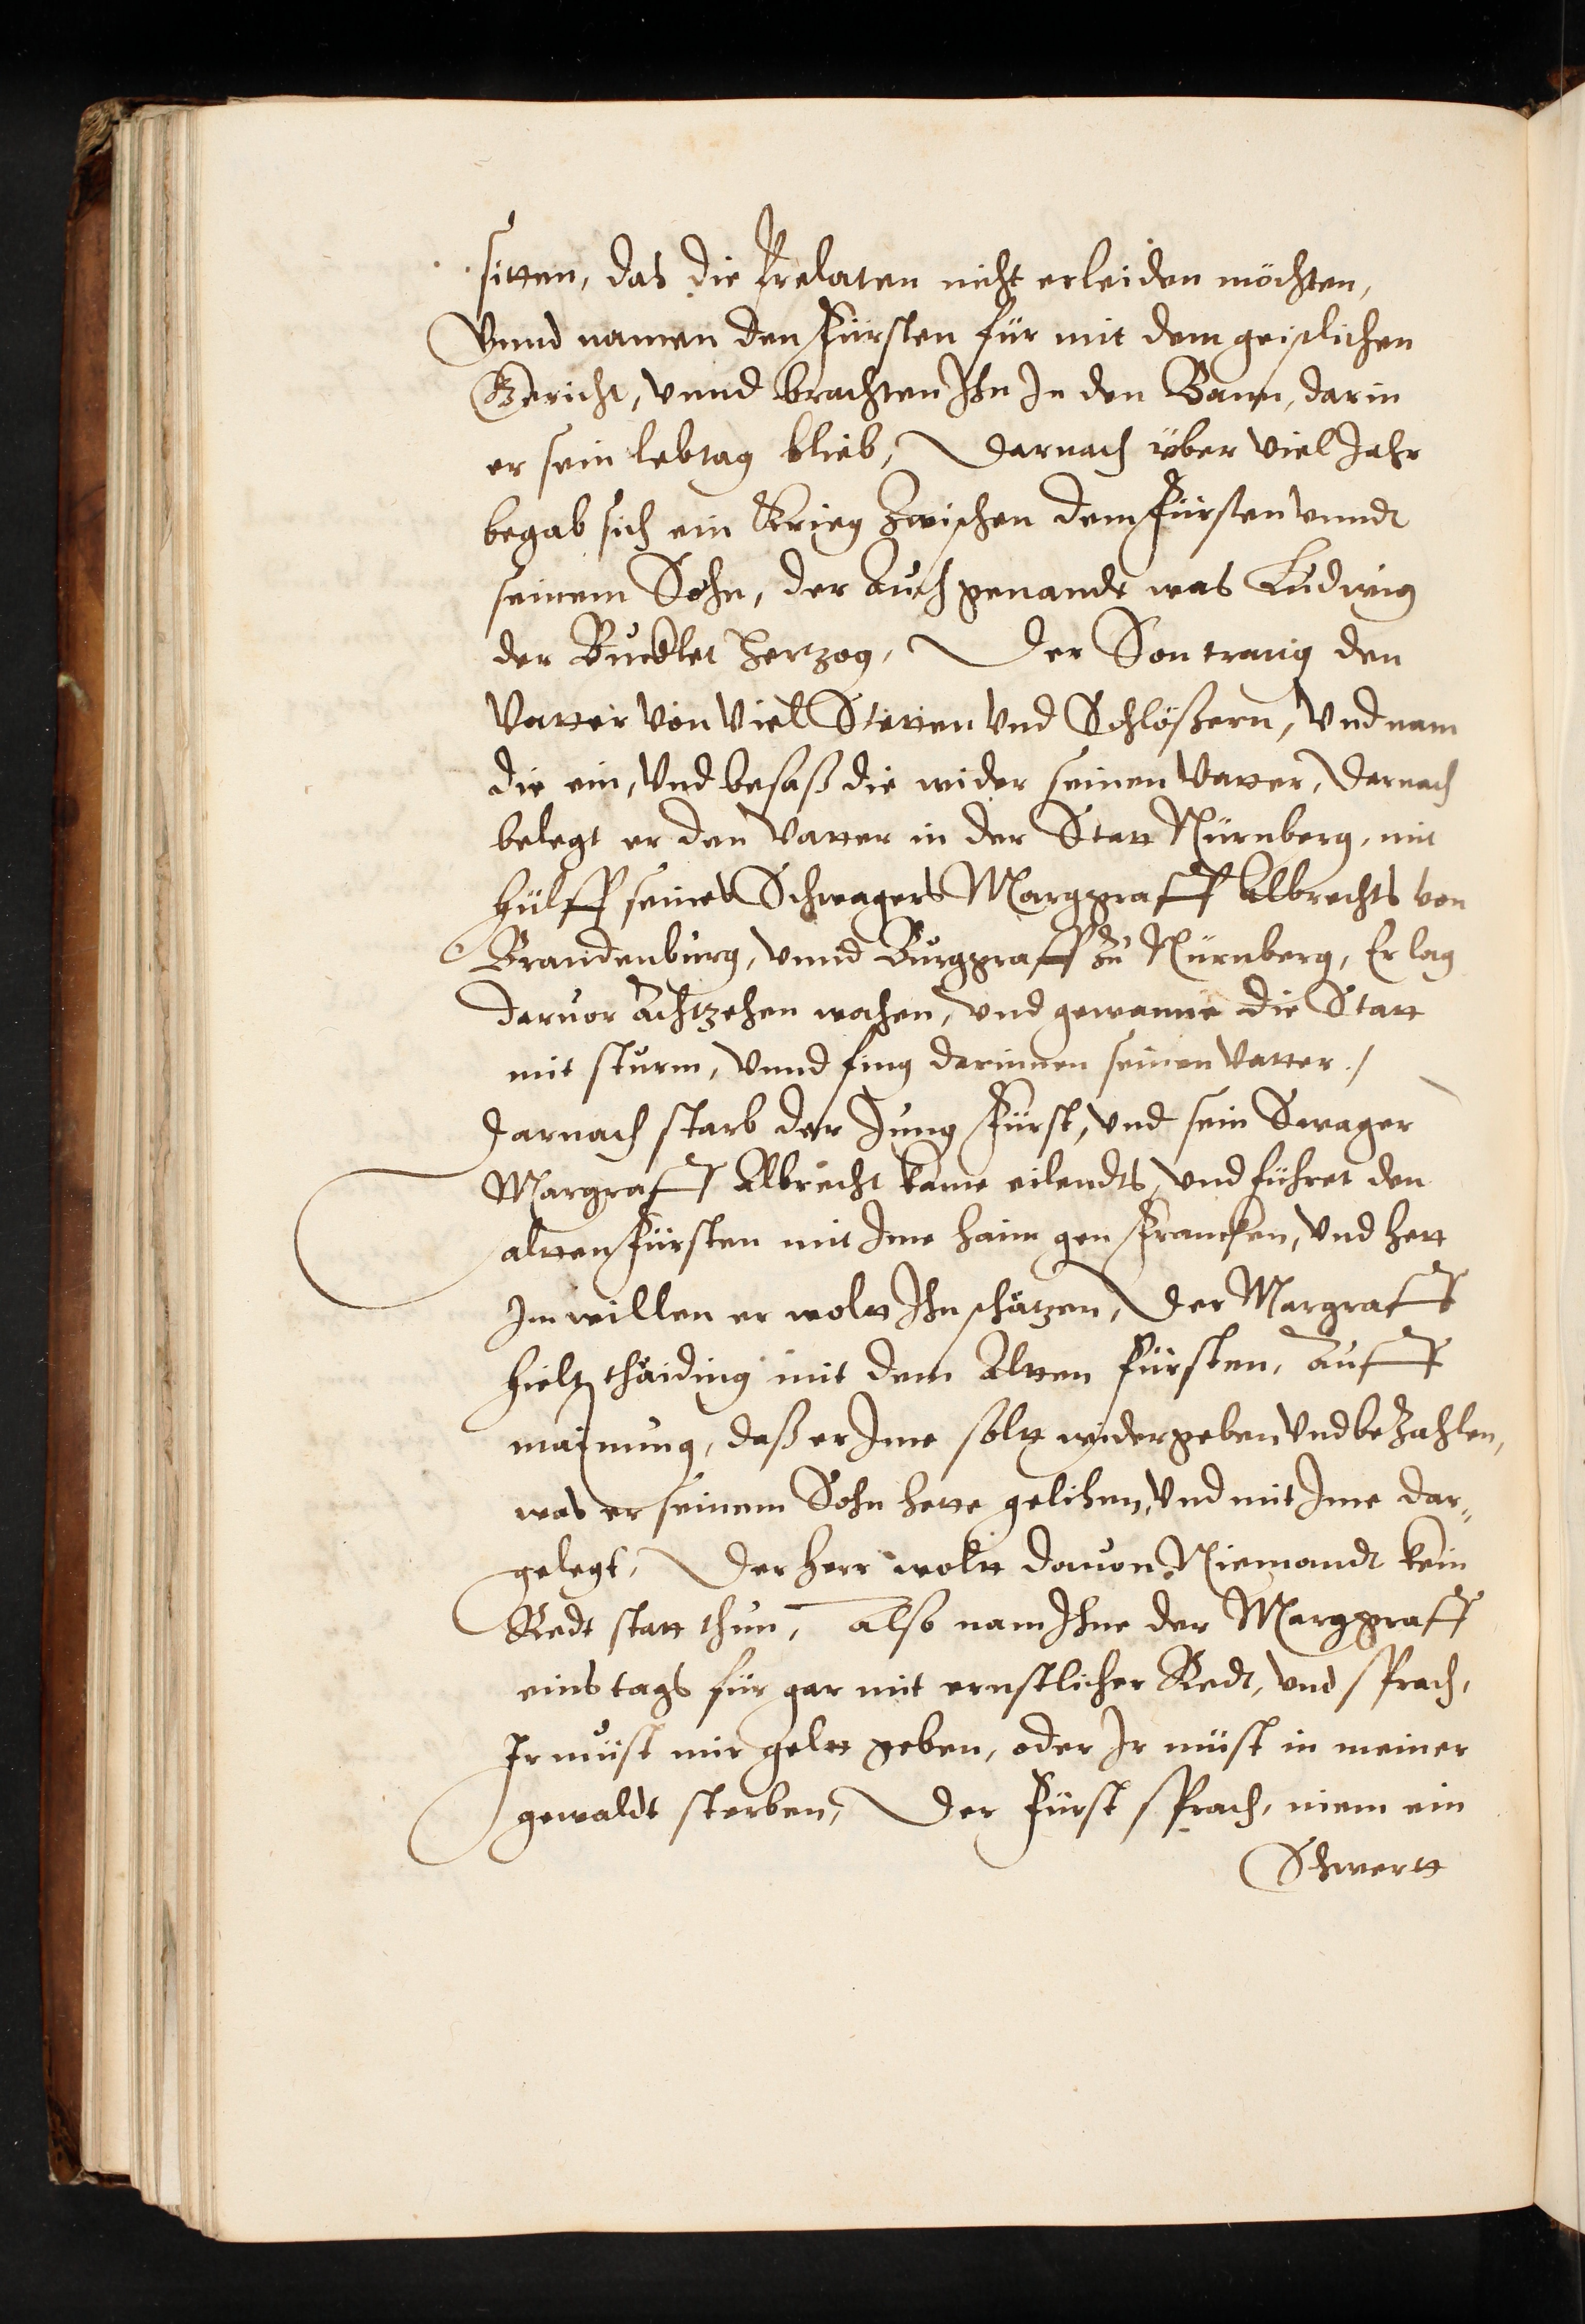 sitten, das die Prelaten nicht erleiden möchten,
Vnnd namen den Fürsten für mit dem geistlichen
Gericht, vnnd brachten Ihn In den Bann, darin
er sein lebtag blieb, Darnach über viel Jahr
begab sich ein Krieg zwischen dem Fürsten vnndt
seinem Sohn, der Auch genandt was Ludwig
der Bucklet Hertzog, Der Son trang den
Vatter von viel Stetten vnd Schlößern, vnd nam
die ein, vnd besaß die wider seinen Vatter, Darnach
belegt er den Vatter in der Statt Nürnberg, mit
hülff seines Schwagers Marggraff Albrechts von
Brandenburg, vnnd Burggraff zu Nürnberg, Er lag
daruor Achtzehen wochen, vnd gewanne die Statt
mit sturm, vnnd fing darinnen seinen Vatter./
Darnach starb der Jung Fürst, vnd sein Swager
Margraff Albrecht kame eilendts, vnd führet den
altten Fürsten mit Ime haim gen Francken, vnd hett
Im willen er woltt Ihn schätzen, Der Margraff
hielt thäiding mit dem Altten Fürsten, Auff
mainung, daß er Ime soltt widergeben vnd bezahlen,
was er seinem Sohn hette gelihen, vnd mit Ime dar„
gelegt, Der Herr woltt dauon Niemandt kein
Redt statt thun, Also nam Ihne der Marggraff
eins tags für gar mit ernstlicher Redt, vnd sprach,
Ir müst mir geltt geben, oder Ir müst in meiner
gewaldt sterben, Der Fürst sprach, niem ein
Schwertt